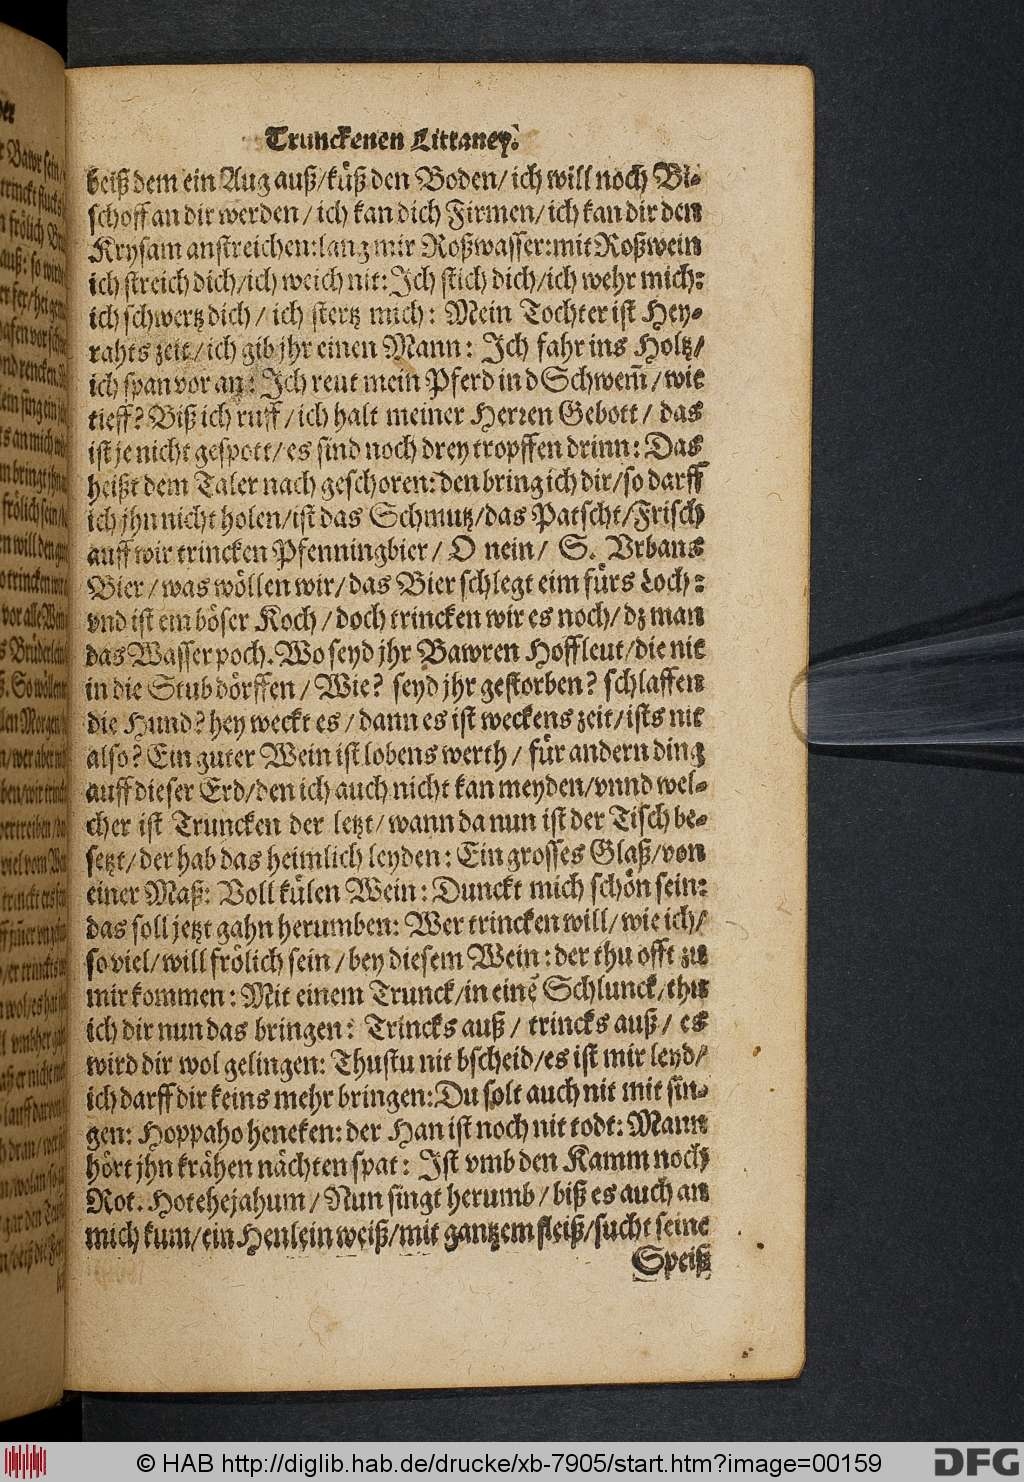 Trunckenen Littaney.
beiß dem ein Aug auß/küß den Boden/ ich will noch Bi-
schoff an dir werden / ich kan dich Firmen/ ich kan dir den
Krysam anstreichen: lang mir Roßwasser: mit Roßwein
ich streich dich/ich weich nit: Ich stich dich/ich wehr mich:
ich schwertz dich / ich stertz mich: Mein Tochter ist Hey-
rahts zeit / ich gib jhr einen Mann: Ich fahr ins Holtz/
ich span vor an: Ich reut mein Pferd in d Schwem̃ / wie
tieff? Biß ich ruff / ich halt meiner Herren Gebott / das
ist je nicht gespott/ es sind noch drey tropffen drinn: Das
heißt dem Taler nach geschoren: den bring ich dir/so darff
ich jhn nicht holen/ist das Schmutz/das Patscht/Frisch
auff wir trincken Pfenningbier / O nein/ S. Vrbans
Bier / was wöllen wir/das Bier schlegt eim fürs Loch:
vnd ist ein böser Koch / doch trincken wir es noch/ dz man
das Wasser poch. Wo seyd jhr Bawren Hoffleut/die nit
in die Stub dörffen / Wie? seyd jhr gestorben? schlaffen
die Hund? hey weckt es / dann es ist weckens zeit/ists nit
also? Ein guter Wein ist lobens werth / für andern ding
auff dieser Erd/den ich auch nicht kan meyden/vnnd wel-
cher ist Truncken der letzt/wann da nun ist der Tisch be-
setzt/ der hab das heimlich leyden: Ein grosses Glaß/von
einer Maß: Voll külen Wein: Dunckt mich schön sein:
das soll jetzt gahn herumben: Wer trincken will/wie ich/
so viel/will frölich sein / bey diesem Wein: der thu offt zu
mir kommen: Mit einem Trunck/in einẽ Schlunck/thu
ich dir nun das bringen: Trincks auß / trincks auß / es
wird dir wol gelingen: Thustu nit bscheid/es ist mir leyd/
ich darff dir keins mehr bringen: Du solt auch nit mit sin-
gen: Hoppaho heneken: der Han ist noch nit todt: Mann
hört jhn krähen nächten spat: Ist vmb den Kamm noch
Rot. Hotehejahum / Nun singt herumb / biß es auch an
mich kum/ein Henlein weiß/mit gantzem fleiß/sucht seine
Speiß
© HAB http://diglib.hab.de/drucke/xb-7905/start.htm?image=00159
DFG